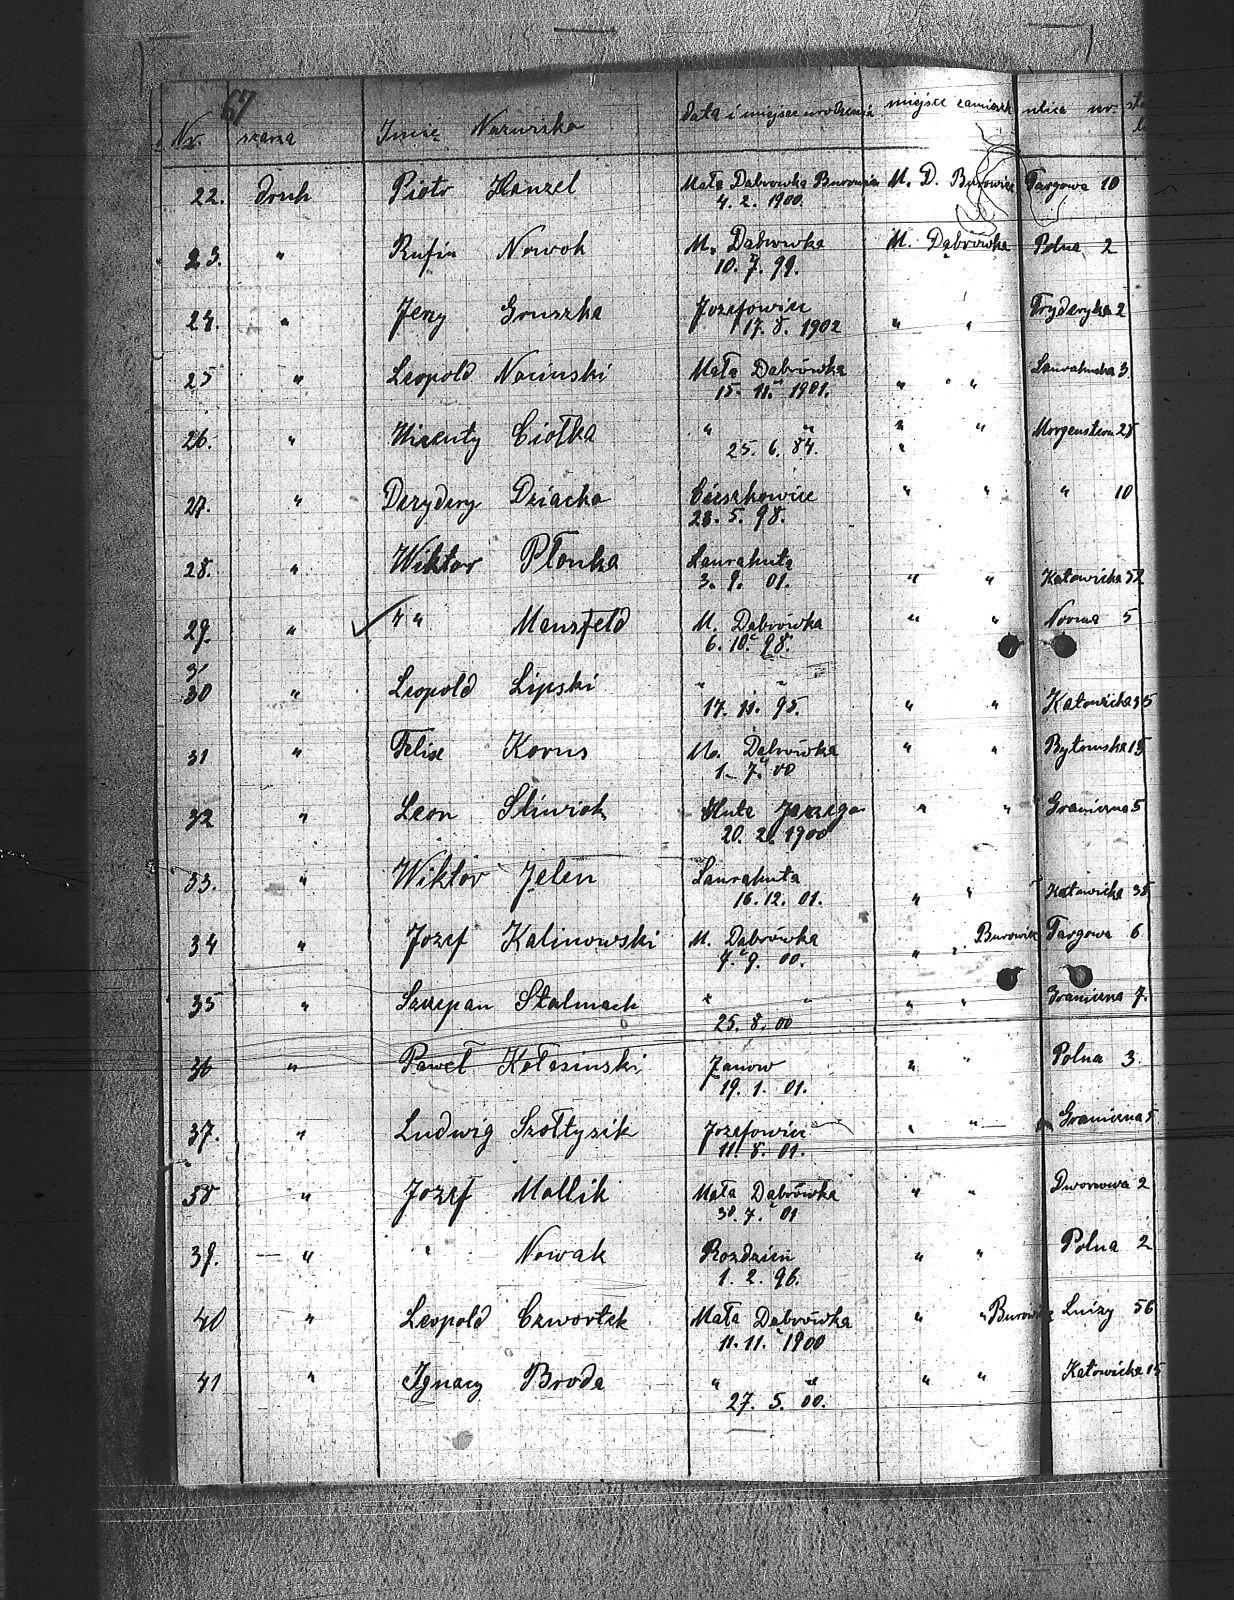 67
Nr. szarza Imię Nazwisko data i miejsce urodzenia miejsce zamieszk ulica nr.
22. druh Piotr Hanzel Mała Dąbrowka Burowiec M. D. Burowiec Targowa 10
4. 2. 1900.
23. " Rufin Nowok M. Dąbrowka M. Dąbrówka Polna 2
10. 7. 99.
24. " Jerzy Gruszka Jozefowiec " " Fryderyka 2
17. 8. 1902
25 " Leopold Nocinski Mała Dąbrówka " " Laurahucka 3
15. 11. 1901.
26. " Wizenty Ciołka " " " " Morgenstern 28
25. 6. 84.
27. " Dezydery Dziacko Cieszkowice " " " 10
23. 5. 98.
28. " Wiktor Płonka Laurahuta " " Katowicka 52
3. 9. 01.
29. " " " Mansfeld M. Dąbrówka " " Nowa 5
6. 10. 98.
30 " Leopold Lipski " " " " Katowicka 35
17. 11. 95.
31 " Felix Korus M. Dąbrówka " " Bytomska 15
1. 7. 00
32 " Leon Sliwiok Huta Jerzego " " Graniczna 5
20. 2. 1900
33. " Wiktor Jelen Laurahuta " " Katowicka 38
16. 12. 01.
34 " Jozef Kalinowski M. Dąbrówka " " Burowiec Targowa 6
4. 9. 00.
35 " Szczepan Stalmach " " " " Graniczna 7.
25. 8. 00
36 " Paweł Kołasinski Janow " " Polna 3.
19. 1. 01.
37. " Ludwig Szołtysik Jozefowiec " " Graniczna 5
11. 8. 01.
38 " Jozef Mollik Mała Dąbrówka " " Dworcowa 2
30. 7. 01
39. " " Nowak Rozdzien " " Polna 2
1. 2. 96.
40 " Leopold Czwortek Mała Dąbrówka " " Burowiec Luizy 56
11. 11. 1900
41 " Ignacy Broda " " " " Katowicka 15
27. 5. 00.